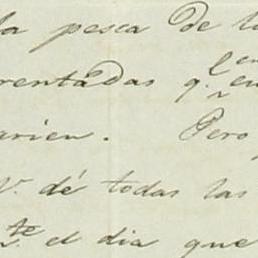 la pesca de la
rentadas q.
arien. Pero
V. dé todas las
te el dia que